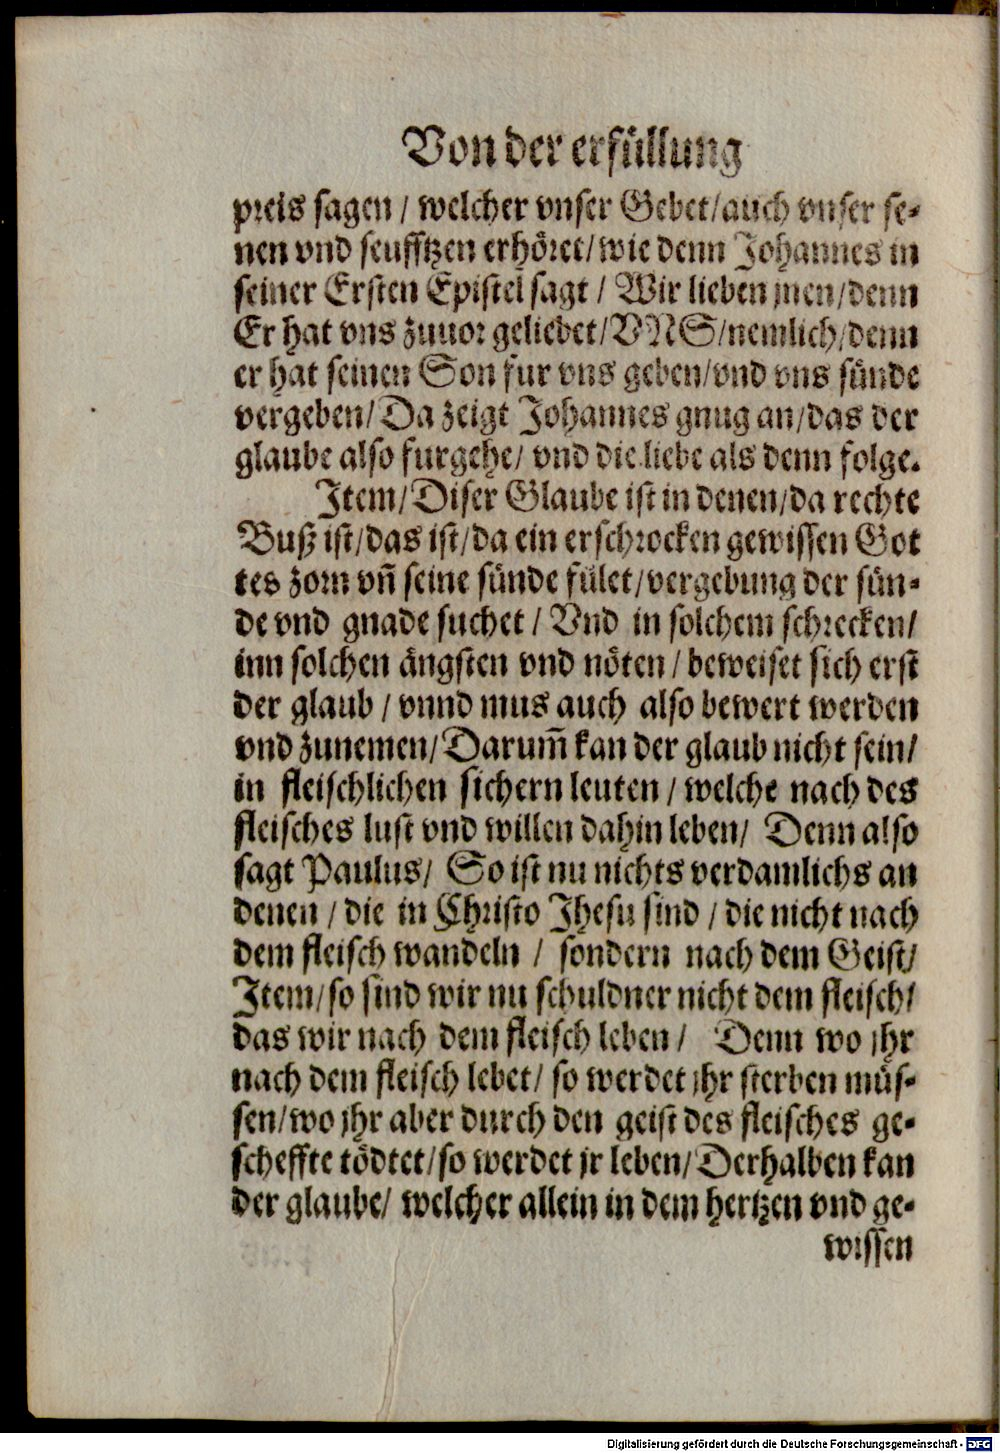 Von der erfüllung
preis sagen / welcher vnser Gebet/auch vnser se-
nen vnd seufftzen erhöret/wie denn Johannes in
seiner Ersten Epistel sagt / Wir lieben jnen/denn
Er hat vns zuuor geliebet/VNS/nemlich/denn
er hat seinen Son fur vns geben/vnd vns sünde
vergeben/Da zeigt Johannes gnug an/das der
glaube also furgehe/ vnd die liebe als denn folge.
Item/Diser Glaube ist in denen/da rechte
Buß ist/das ist/da ein erschrocken gewissen Got
tes zorn vñ seine sünde fület/vergebung der sün-
de vnd gnade suchet / Vnd in solchem schrecken/
inn solchen ängsten vnd nöten / beweiset sich erst
der glaub / vnnd mus auch also bewert werden
vnd zunemen/Darum̃ kan der glaub nicht sein/
in fleischlichen sichern leuten / welche nach des
fleisches lust vnd willen dahin leben/ Denn also
sagt Paulus/ So ist nu nichts verdamlichs an
denen / die in Christo Jhesu sind / die nicht nach
dem fleisch wandeln / sondern nach dem Geist/
Item/so sind wir nu schuldner nicht dem fleisch/
das wir nach dem fleisch leben / Denn wo jhr
nach dem fleisch lebet/ so werdet jhr sterben müs-
sen/wo jhr aber durch den geist des fleisches ge-
scheffte tödtet/so werdet jr leben/Derhalben kan
der glaube/ welcher allein in dem hertzen vnd ge-
wissen
Digitalisierung gefördert durch die Deutsche Forschungsgemeinschaft - DFG